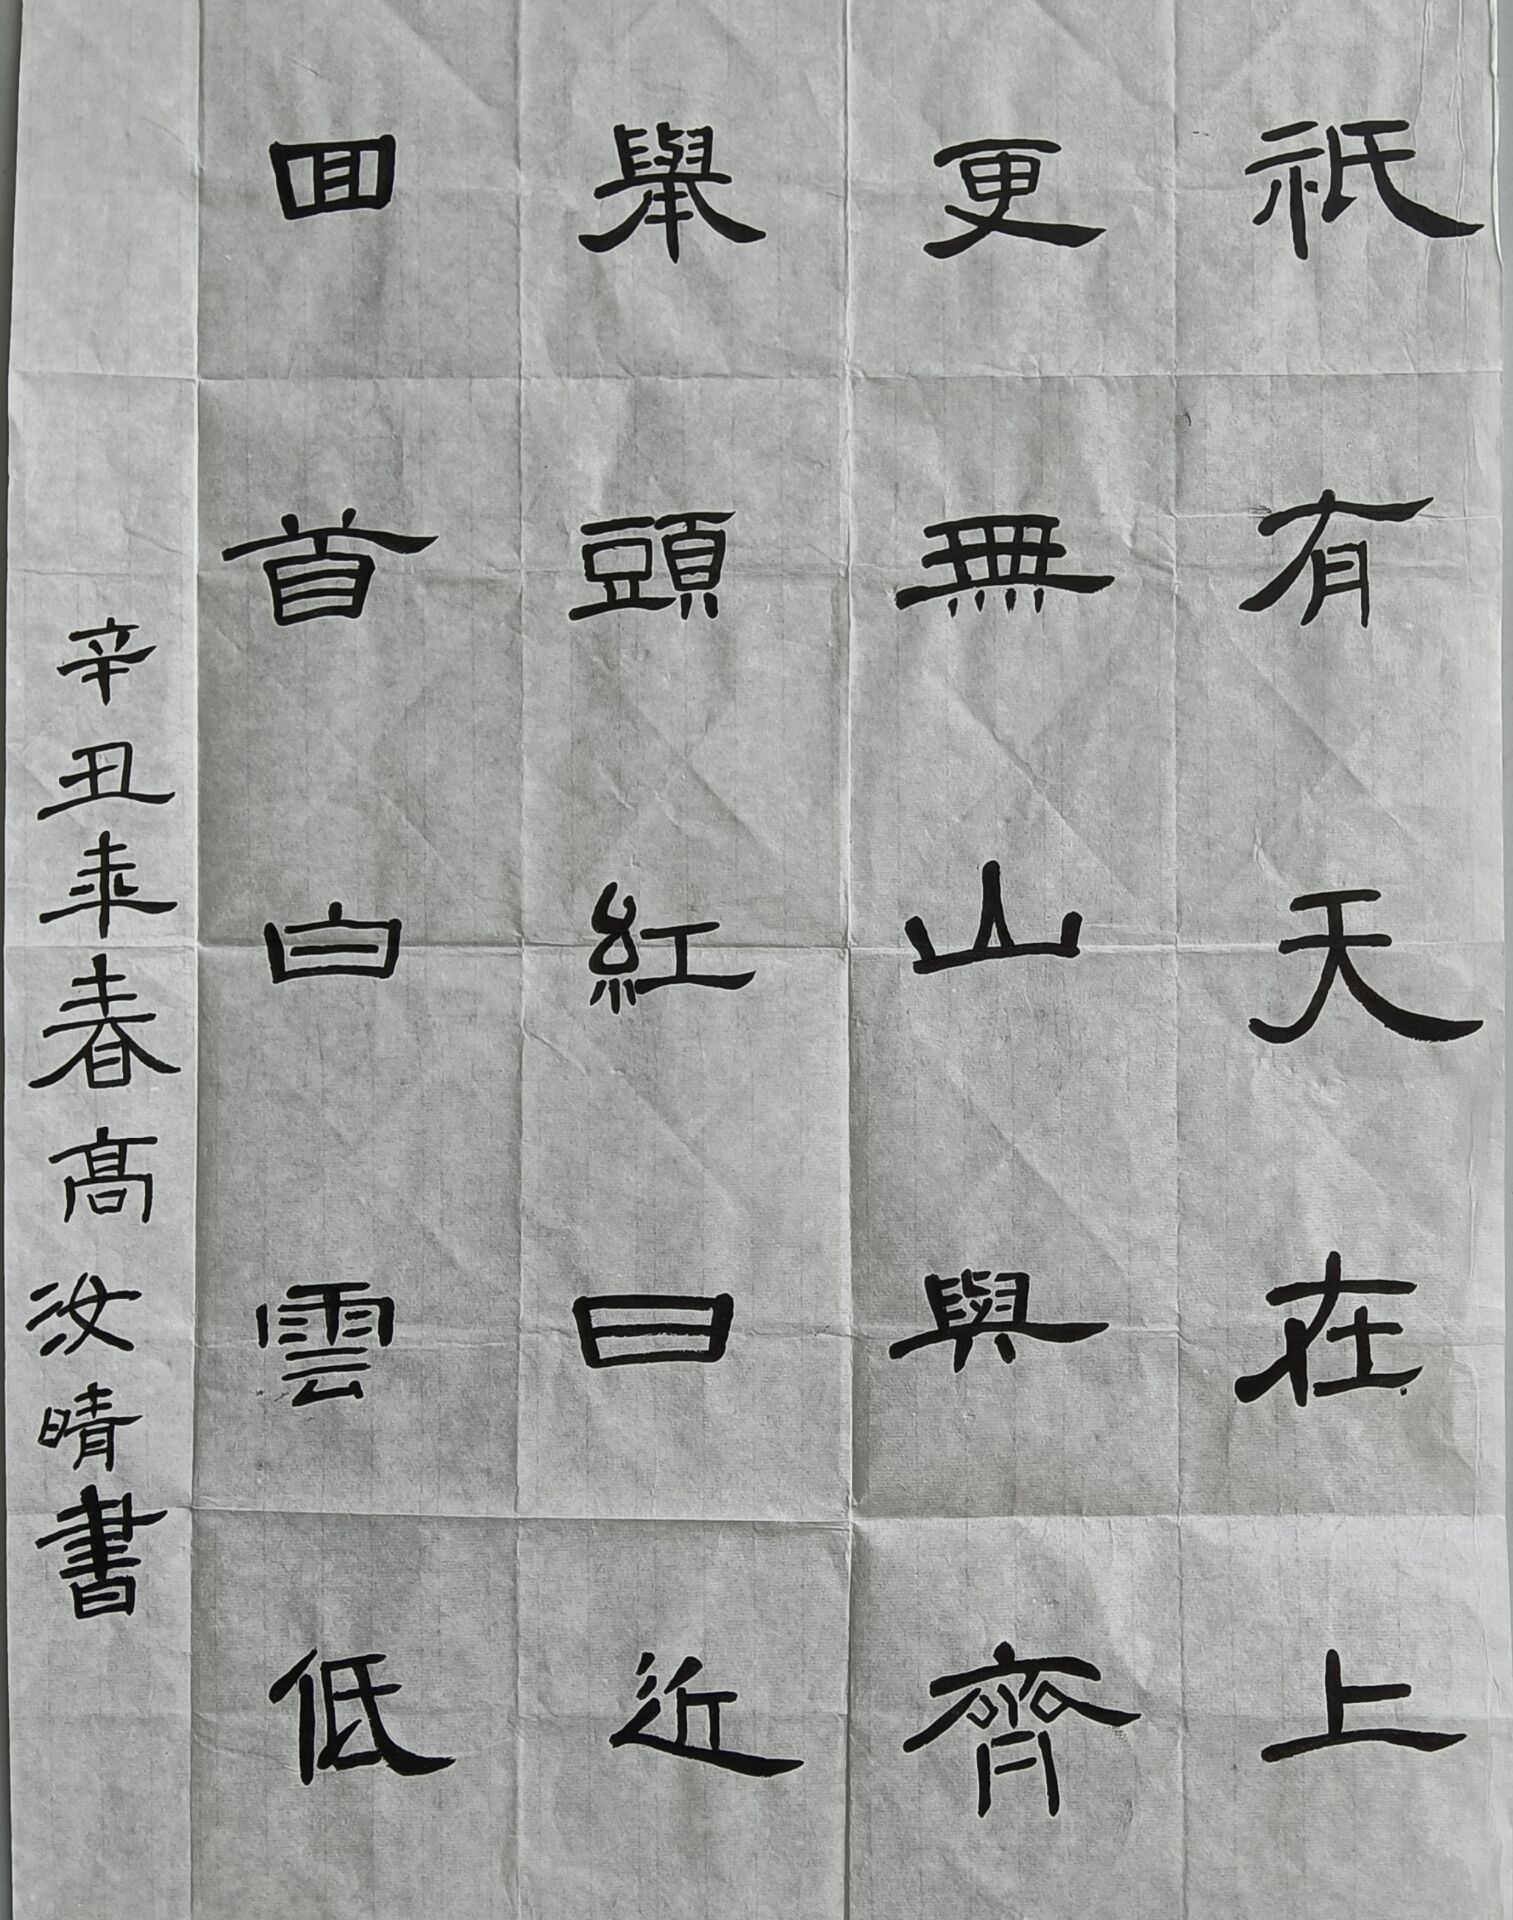 祇有天在上
更無山與齊
舉頭紅日近
回首白雲低
辛丑年春高汝晴書